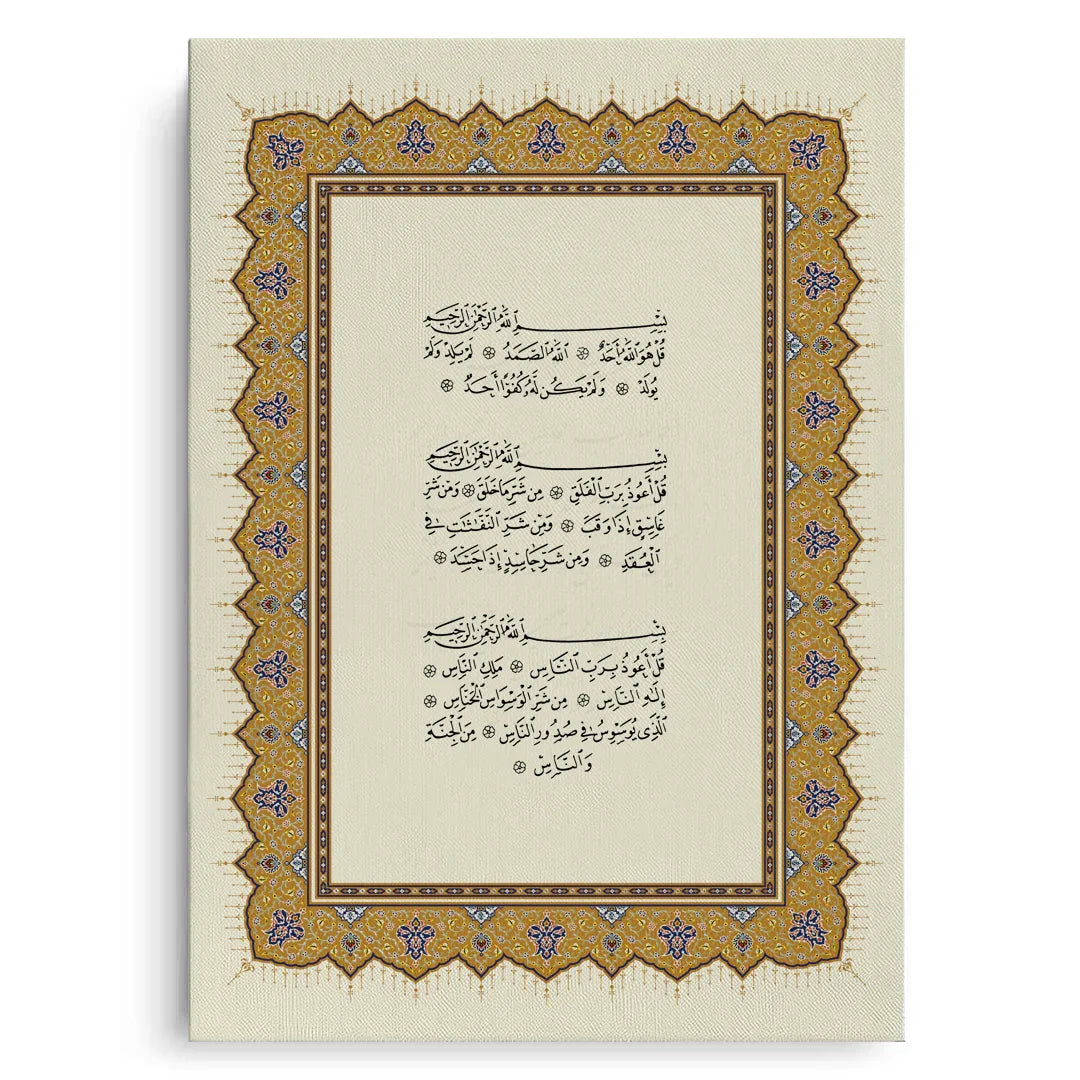 بِسْمِ ٱللَّهِ ٱلرَّحْمَٰنِ ٱلرَّحِيمِ
قُلْ هُوَ ٱللَّهُ أَحَدٌ ۞ ٱللَّهُ ٱلصَّمَدُ ۞ لَمْ يَلِدْ وَلَمْ
يُولَدْ ۞ وَلَمْ يَكُن لَّهُۥ كُفُوًا أَحَدٌ ۞
بِسْمِ ٱللَّهِ ٱلرَّحْمَٰنِ ٱلرَّحِيمِ
قُلْ أَعُوذُ بِرَبِّ ٱلْفَلَقِ ۞ مِن شَرِّ مَا خَلَقَ ۞ وَمِن شَرِّ
غَاسِقٍ إِذَا وَقَبَ ۞ وَمِن شَرِّ ٱلنَّفَّٰثَٰتِ فِى
ٱلْعُقَدِ ۞ وَمِن شَرِّ حَاسِدٍ إِذَا حَسَدَ ۞
بِسْمِ ٱللَّهِ ٱلرَّحْمَٰنِ ٱلرَّحِيمِ
قُلْ أَعُوذُ بِرَبِّ ٱلنَّاسِ ۞ مَلِكِ ٱلنَّاسِ ۞
إِلَٰهِ ٱلنَّاسِ ۞ مِن شَرِّ ٱلْوَسْوَاسِ ٱلْخَنَّاسِ ۞
ٱلَّذِى يُوَسْوِسُ فِى صُدُورِ ٱلنَّاسِ ۞ مِنَ ٱلْجِنَّةِ
وَٱلنَّاسِ ۞